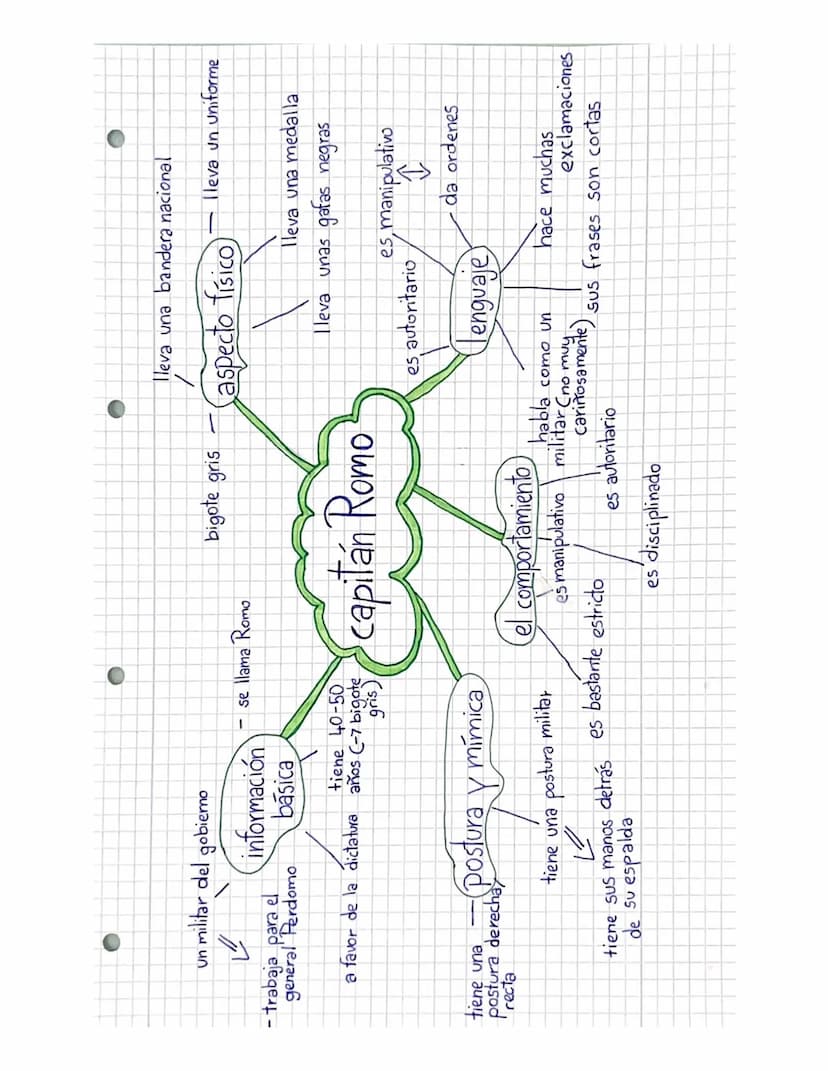 capitán Romo
información
básica
- se llama Romo
un militar del gobierno
- trabaja para el
general Perdomo
a favor de la dictatura
tiene 40-50
años (-7 bigote
gris)
aspecto físico
bigote gris
lleva una bandera nacional
lleva un uniforme
lleva una medalla
lleva unas gafas negras
lenguaje
es autoritario
es manipulativo
da ordenes
hace muchas
exclamaciones
sus frases son cortas
habla como un
militar (no muy
cariñosamente)
el comportamiento
es manipulativo
es autoritario
es disciplinado
es bastante estricto
postura y mímica
tiene una
postura derecha,
recta
tiene una postura militar
tiene sus manos detrás
de su espalda